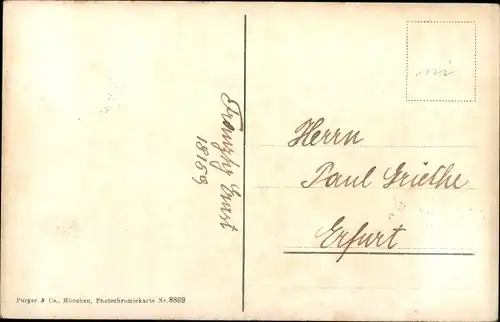 Ernst
18159
Herrn
Paul Griethe
Erfurt
Purger & Co., München, Photochromiekarte Nr. 8869